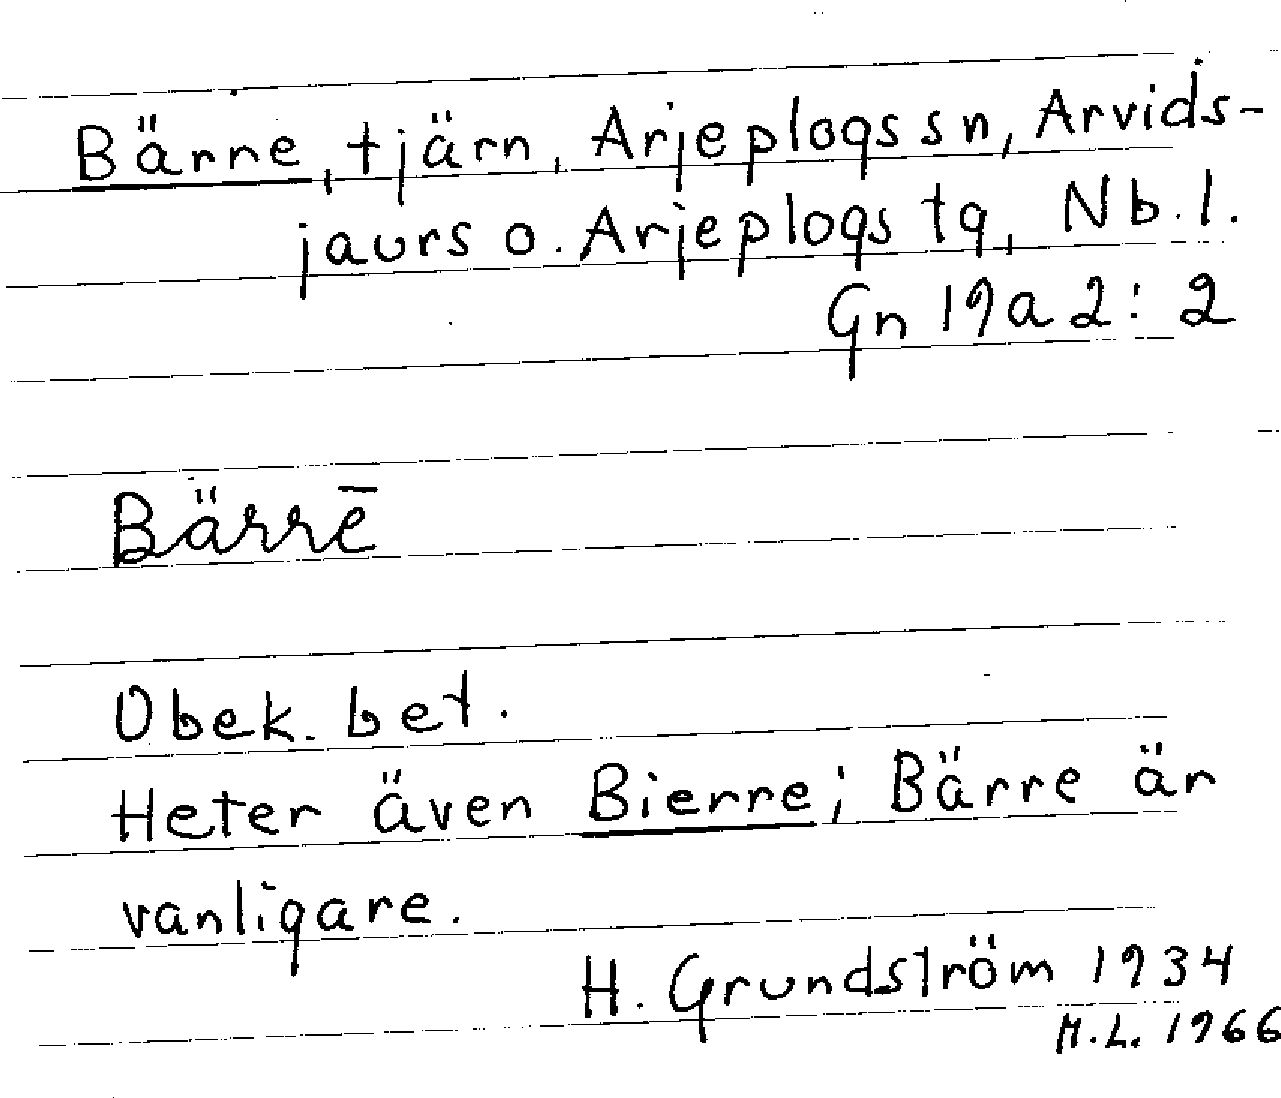 Bärre, tjärn, Arjeplogs sn, Arvids-
jaurs o. Arjeplogs tg, Nb.l.
Gn 19a2: 2
Bärrē
Obek. bet.
Heter även Bierre; Bärre är
vanligare.
H. Grundström 1934
H.L. 1966